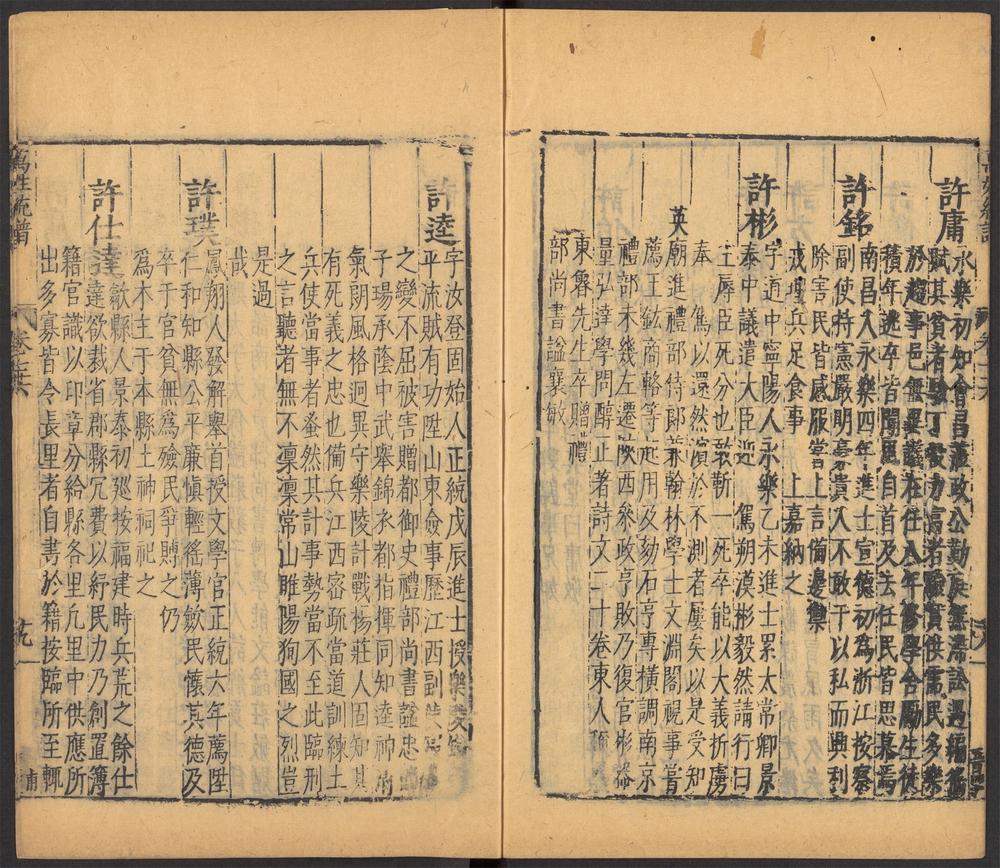 許庸
永樂初知會昌蒞政公勤庭無滯訟遇編徭
賦其貧者驗丁役力富者驗貲供需民多樂
於趨事邑無在任八年修學舍勵生徒
積年逃卒皆聞風自首及去任民皆思慕焉
許銘
南昌人永樂四年進士宣德初為浙江按察
副使持憲嚴明豪貴人不敢干以私而興利
除害民皆感服嘗上言備邊禦
戎堙兵足食事 上嘉納之
許彬
字道中寧陽人永樂乙未進士累太常卿景
泰中議遣大臣迎 駕朔漠彬毅然請行曰
主辱臣死分也敢靳一死卒能以大義折虜
奉 駕以還然濱於不測者屢矣以是受知
英廟進禮部侍郎兼翰林學士文淵閣視事嘗
薦王鉉商輅等起用及劾石亨專橫調南京
禮部未幾左遷陝西參政亨敗乃復官彬器
量弘達學問醇正著詩文二十卷東人稱
東魯先生卒贈禮
部尚書謚襄敏
許逵
字汝登固始人正統戊辰進士授樂陵知
平流賊有功陞山東僉事歷江西副使寧
之變不屈被害贈都御史禮部尚書謚忠
子瑒承蔭中武舉錦衣都指揮同知逵神
氣朗風格迥異守樂陵計戰楊莊人固知其
有死義之忠也備兵江西密疏當道訓練土
兵使當時當事者蚤然其計事勢當不至此臨刑
之言聽者無不凜凜常山睢陽狥國之烈豈
是過
哉
許璞
鳳翔人發解舉首授文學官正統六年薦陞
仁和知縣公平廉慎輕徭薄歛民懷其德及
卒于官貧無為殮民爭賻之仍
為木主于本縣土神祠祀之
許仕達
歙縣人景泰初廵按福建時兵荒之餘仕
達欲裁省郡縣冗費以紓民力乃創置簿
籍官識以印章分給縣各里凢里中供應所
出多寡皆令長里者自書於籍按臨所至輒
萬姓統譜
卷